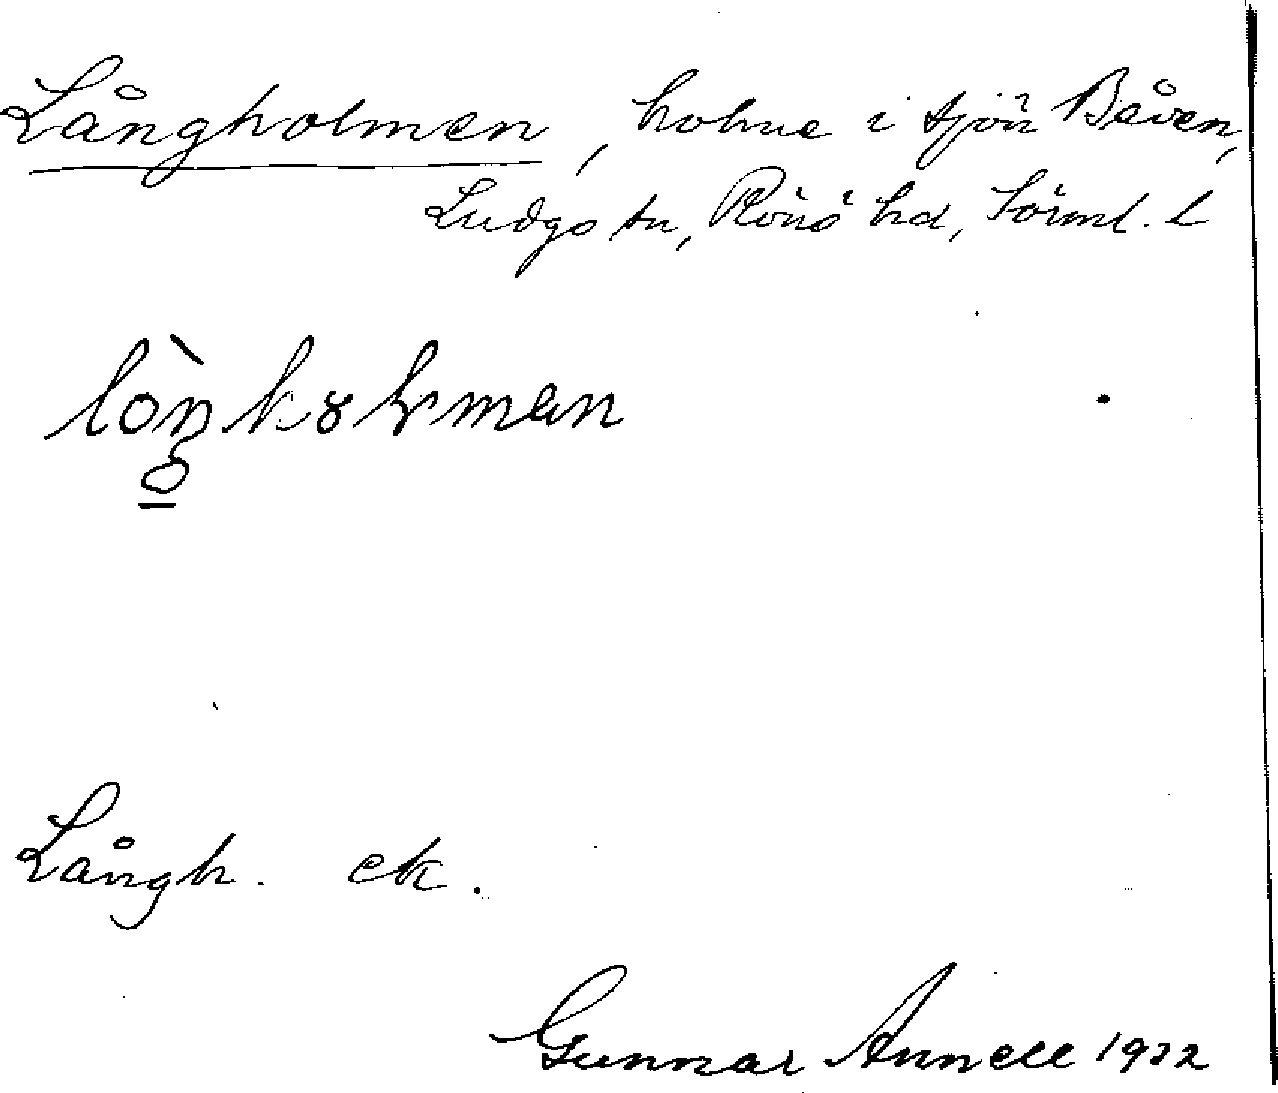 Långholmen, holme i sjön Båven,
Ludgo sn, Rönö hd, Söıml. L
Långh. ek.
Gunnar Annell 1932